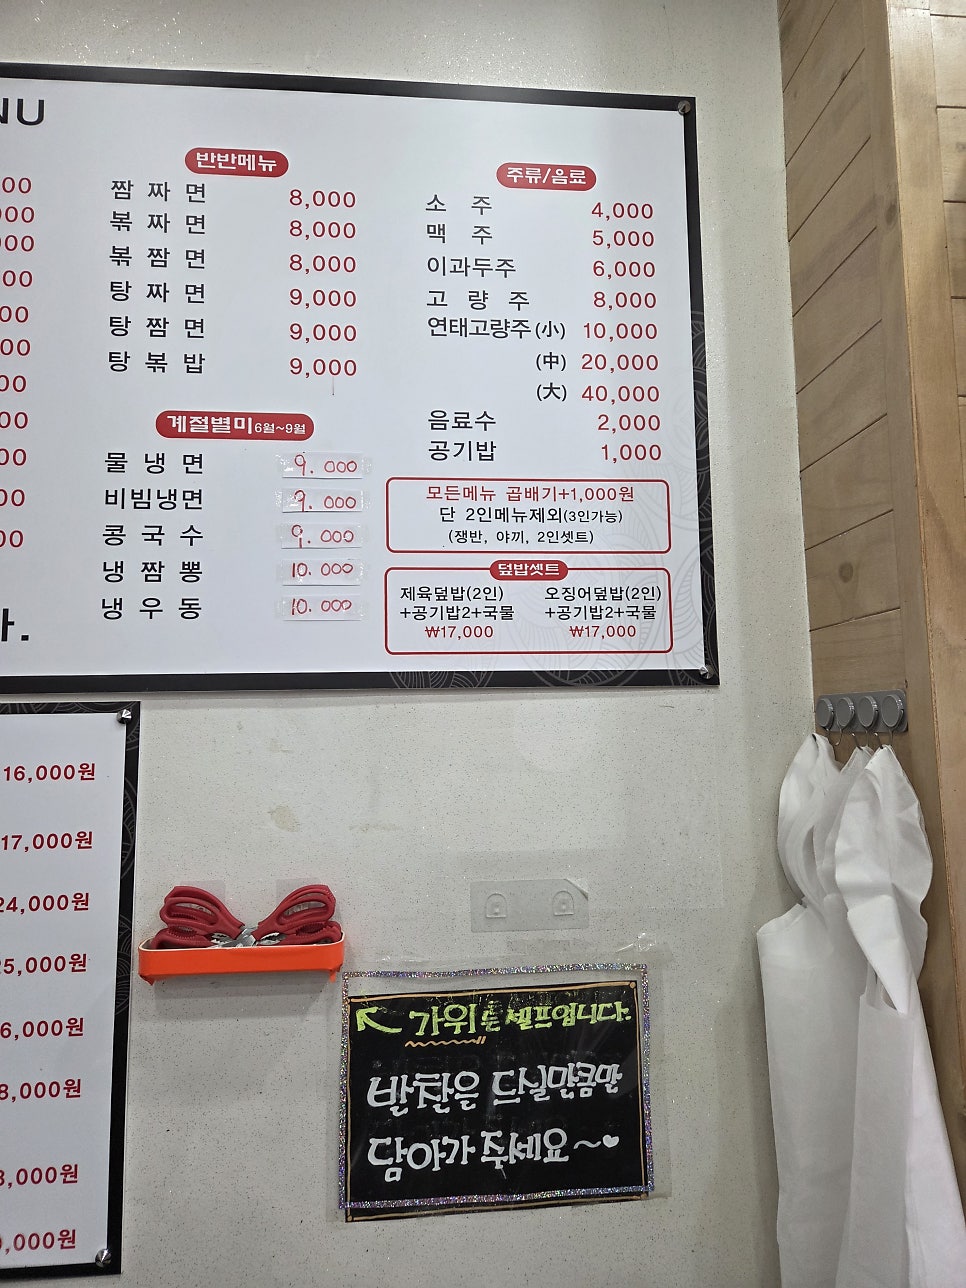 NU
반반메뉴
짬 짜 면 8,000
볶 짜 면 8,000
볶 짬 면 8,000
탕 짜 면 9,000
탕 짬 면 9,000
탕 볶 밥 9,000
계절별미 6월~9월
물 냉 면 9.000
비빔냉면 9.000
콩 국 수 9.000
냉 짬 뽕 10.000
냉 우 동 10.000
주류/음료
소 주 4,000
맥 주 5,000
이과두주 6,000
고 량 주 8,000
연태고량주(小) 10,000
(中) 20,000
(大) 40,000
음료수 2,000
공기밥 1,000
모든메뉴 곱배기+1,000원
단 2인메뉴제외(3인가능)
(쟁반, 야끼, 2인셋트)
덮밥셋트
제육덮밥(2인)
+공기밥2+국물
₩17,000
오징어덮밥(2인)
+공기밥2+국물
₩17,000
16,000원
17,000원
24,000원
25,000원
6,000원
8,000원
3,000원
,000원
← 가위는 셀프입니다.
반찬은 드실만큼만
담아가 주세요~♥